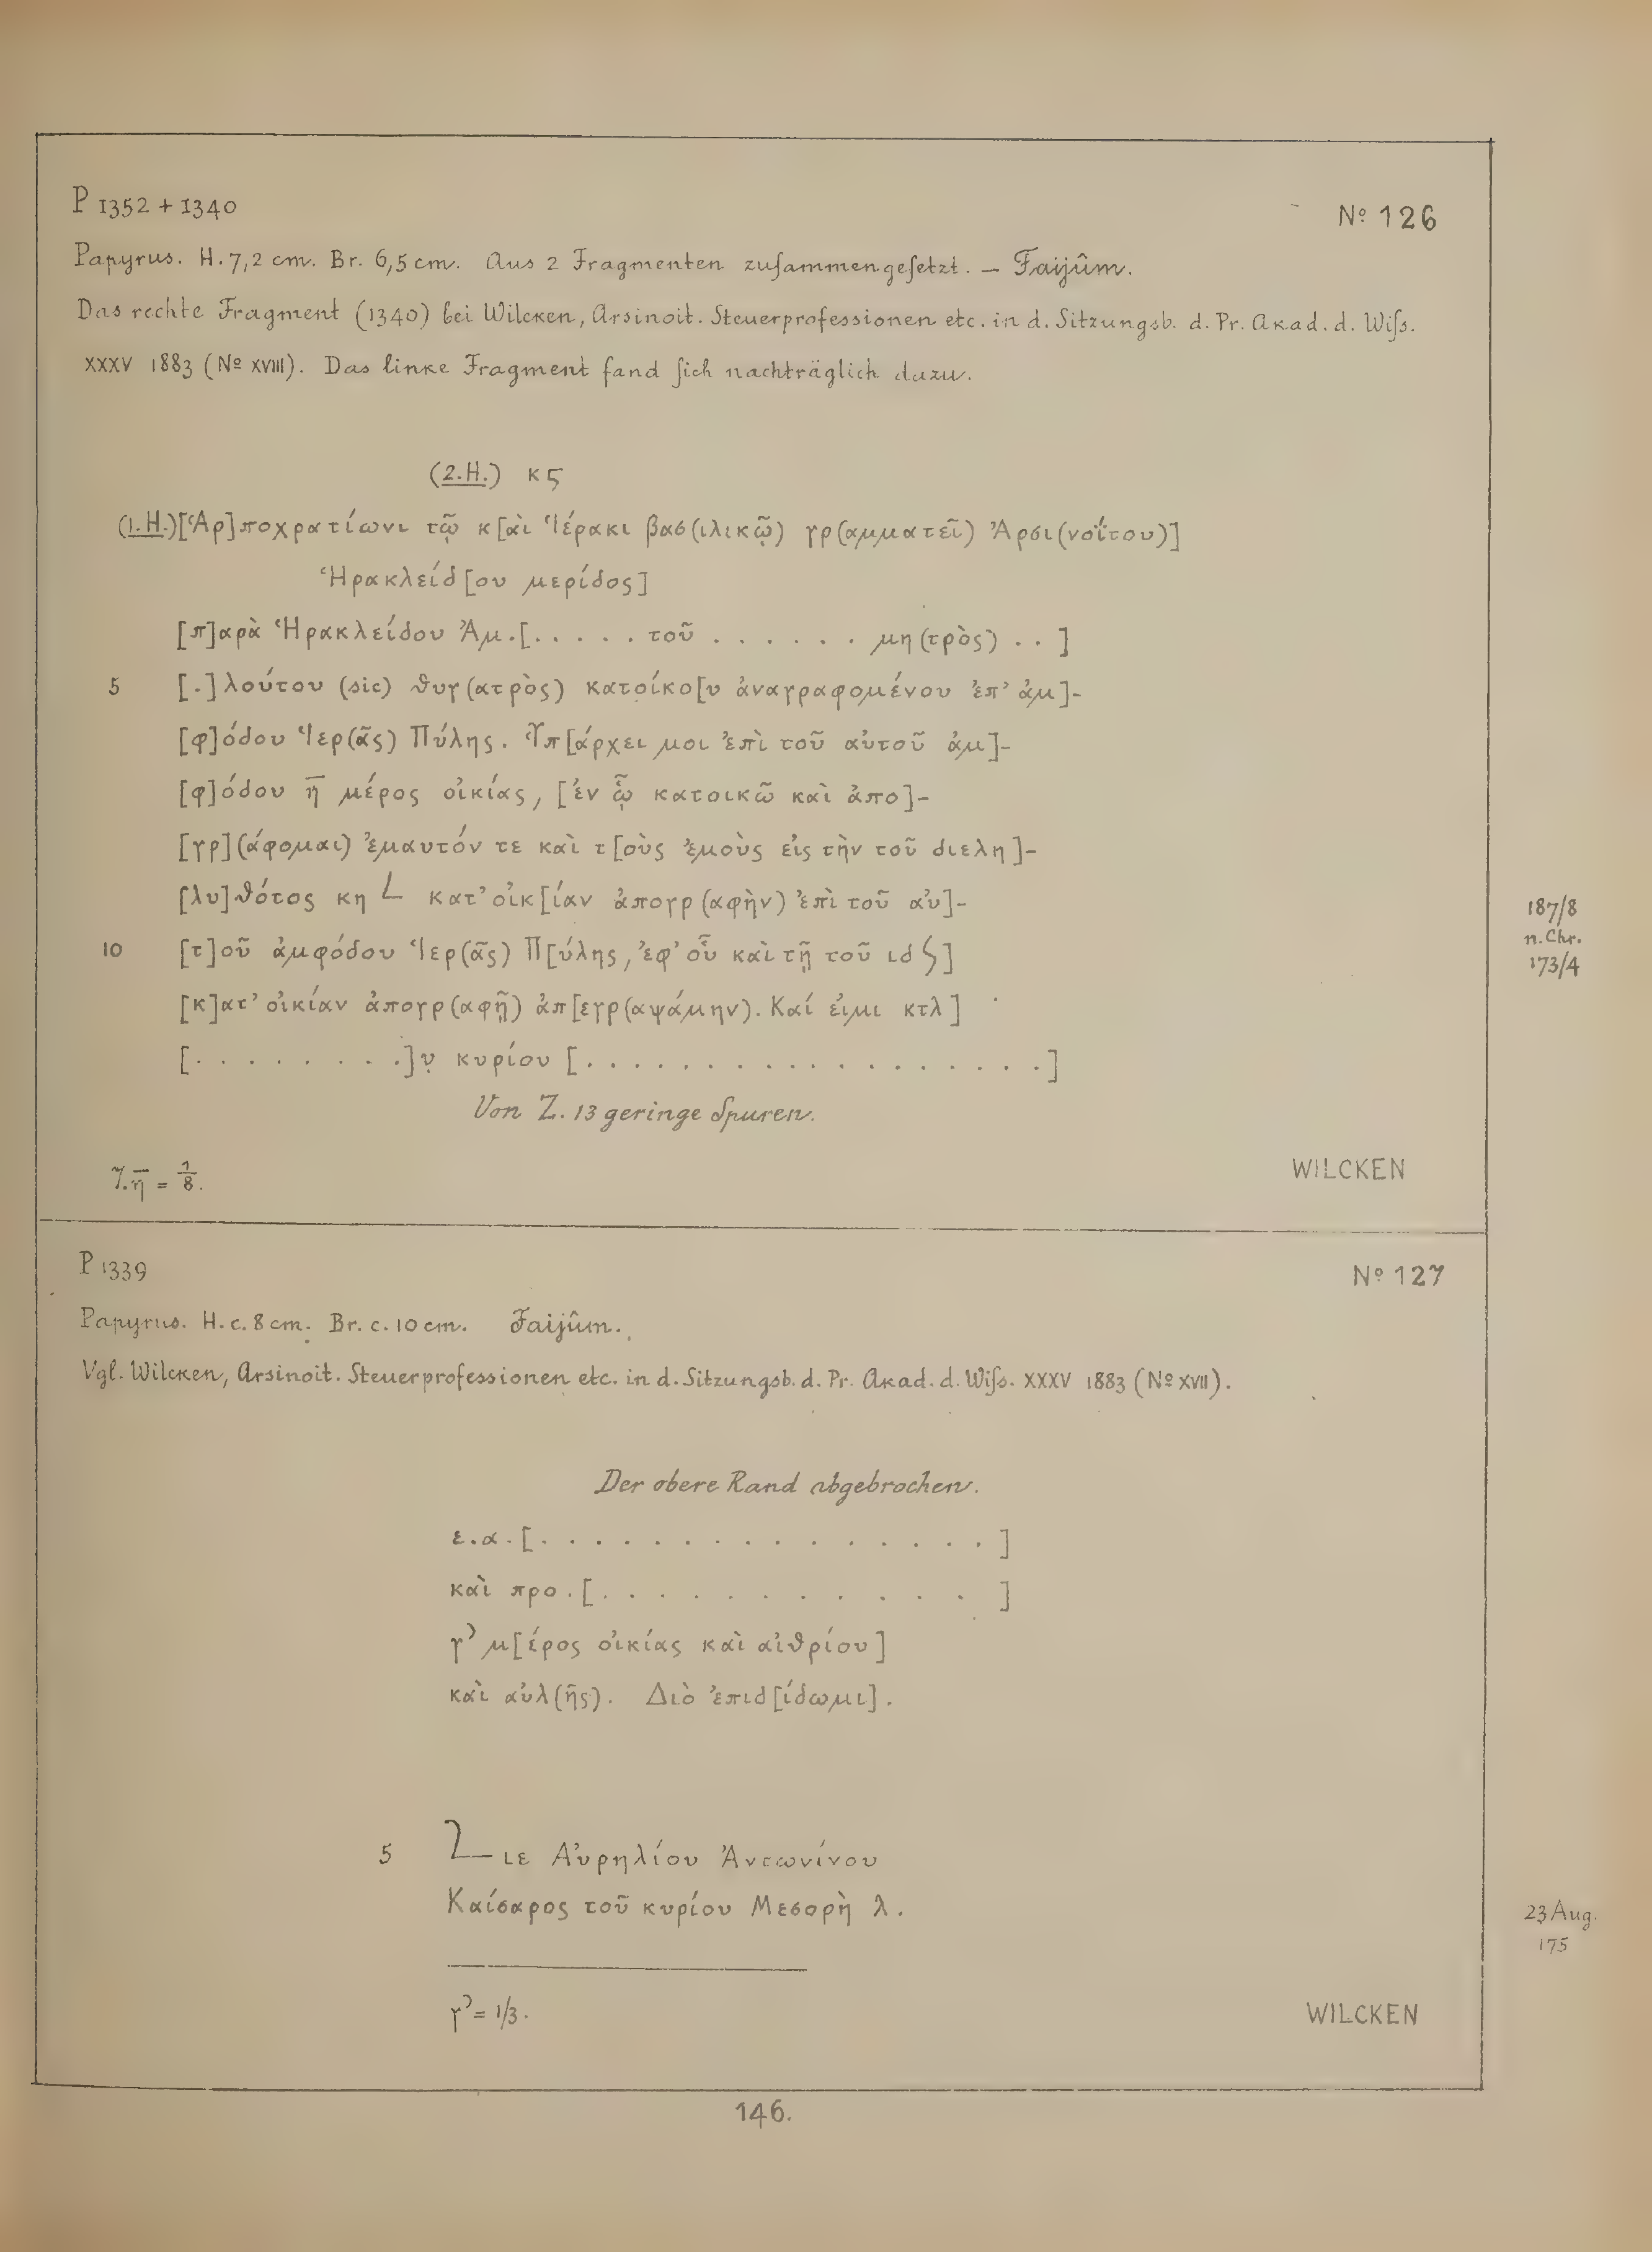 P 1352 + 1340
Nº 126
Papyrus. H. 7,2 cm. Br. 6,5 cm. Aus 2 Fragmenten zuſammengeſetzt. — Faijûm.
Das rechte Fragment (1340) bei Wilcken, Arsinoit. Steuerprofessionen etc. in d. Sitzungsb. d. Pr. Akad. d. Wiſs.
XXXV 1883 (Nº XVIII). Das linke Fragment fand ſich nachträglich dazu.
(2.H.) κϛ
(1.H.) [Ἁρ]ποχρατίωνι τῷ κ[αὶ Ἱέρακι βασ(ιλικῷ) γρ(αμματεῖ) Ἀρσι(νοΐτου)]
Ἡρακλείδ[ου μερίδος]
[π]αρὰ Ἡρακλείδου Ἀμ.[. . . . . τοῦ . . . . . . . μη(τρὸς) . . ]
5 [.]λούτου (sic) θυγ(ατρὸς) κατοίκο[υ ἀναγραφομένου ἐπ’ ἀμ]-
[φ]όδου Ἱερ(ᾶς) Πύλης. Ὑπ[άρχει μοι ἐπὶ τοῦ αὐτοῦ ἀμ]-
[φ]όδου η̅ μέρος οἰκίας, [ἐν ᾧ κατοικῶ καὶ ἀπο]-
[γρ](άφομαι) ἐμαυτόν τε καὶ τ[οὺς ἐμοὺς εἰς τὴν τοῦ διελη]-
[λυ]θότος κη L κατ’ οἰκ[ίαν ἀπογρ(αφὴν) ἐπὶ τοῦ αὐ]-
187/8
n. Chr.
173/4
10 [τ]οῦ ἀμφόδου Ἱερ(ᾶς) Π[ύλης, ἐφ’ οὗ καὶ τῇ τοῦ ιδ ϛ]
[κ]ατ’ οἰκίαν ἀπογρ(αφῇ) ἀπ[εγρ(αψάμην). Καί εἰμι κτλ]
[. . . . . . . .]υ̣ κυρίου [. . . . . . . . . . . . . . . . . .]
Von Z. 13 geringe Spuren.
7. η̅ = 1/8.
WILCKEN
P 1339
Nº 127
Papyrus. H. c. 8 cm. Br. c. 10 cm. Faijûm.
Vgl. Wilcken, Arsinoit. Steuerprofessionen etc. in d. Sitzungsb. d. Pr. Akad. d. Wiſs. XXXV 1883 (Nº XVII).
Der obere Rand abgebrochen.
ε.α.[. . . . . . . . . . . . . . . . ]
καὶ προ.[. . . . . . . . . . ]
γ’ μ[έρος οἰκίας καὶ αἰθρίου]
καὶ αὐλ(ῆς). Διὸ ἐπιδ[ίδωμι].
5 L ιε Αὐρηλίου Ἀντωνίνου
Καίσαρος τοῦ κυρίου Μεσορὴ λ.
23 Aug.
175
γ’ = 1/3.
WILCKEN
146.